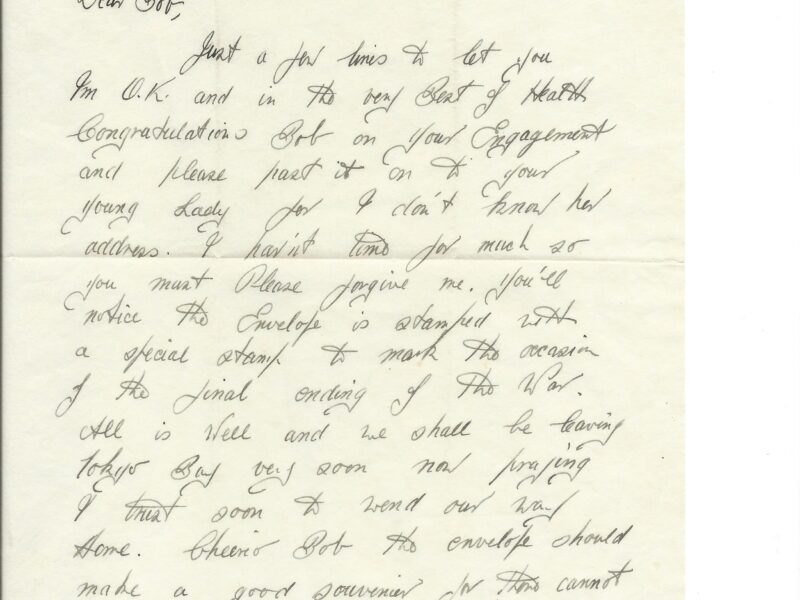 Dear Bob,
Just a few lines to let you
I'm O.K. and in the very Best of Health
Congratulations Bob on your Engagement
and please past it on to your
young Lady for I don't know her
address. I hav'it time for much so
you must Please forgive me. You'll
notice the Envelope is stamped with
a special stamp to mark the occasion
of the final ending of the War.
All is Well and we shall be leaving
Tokyo Bay very soon now praying
I trust soon to wend our way
Home. Cheerio Bob the envelope should
make a good souvenier for there cannot